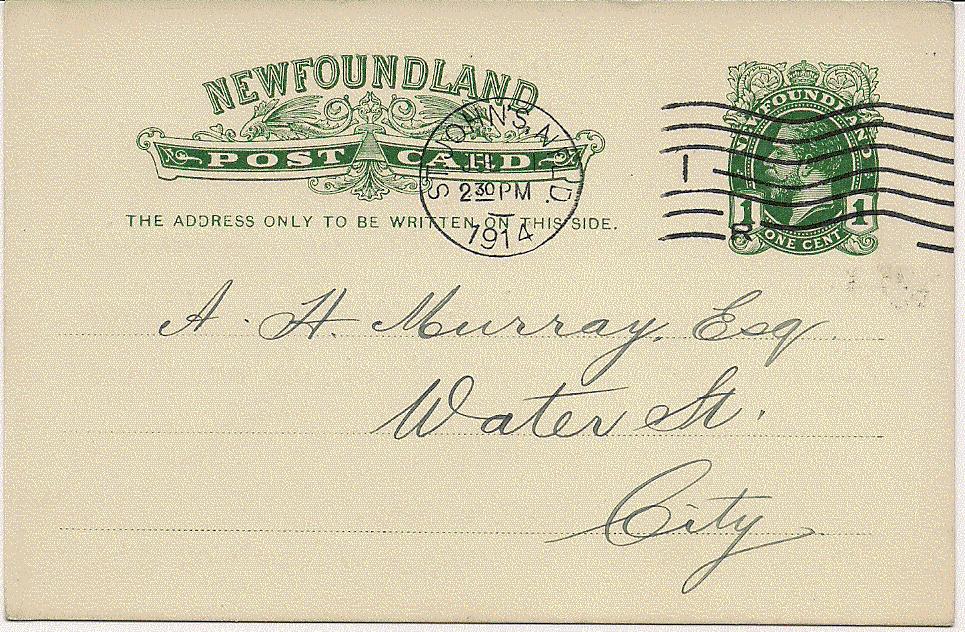 NEWFOUNDLAND
POST CARD
THE ADDRESS ONLY TO BE WRITTEN ON THIS SIDE.
ST. JOHN'S, N.F.L.D.
2 30 PM
1914
I
R
NEWFOUNDLAND
1 1
ONE CENT
A. H. Murray, Esq.
Water St.
City